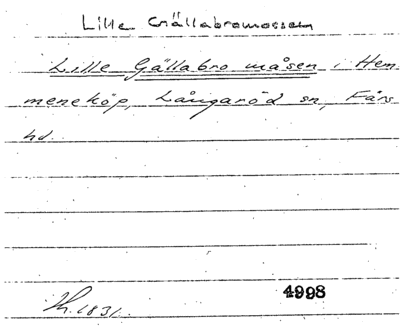 Lille Gällabromossen
Lille Gällabro måsen i Hem
meneköp, Långaröd sn, Färs
hd.
1831.
4998